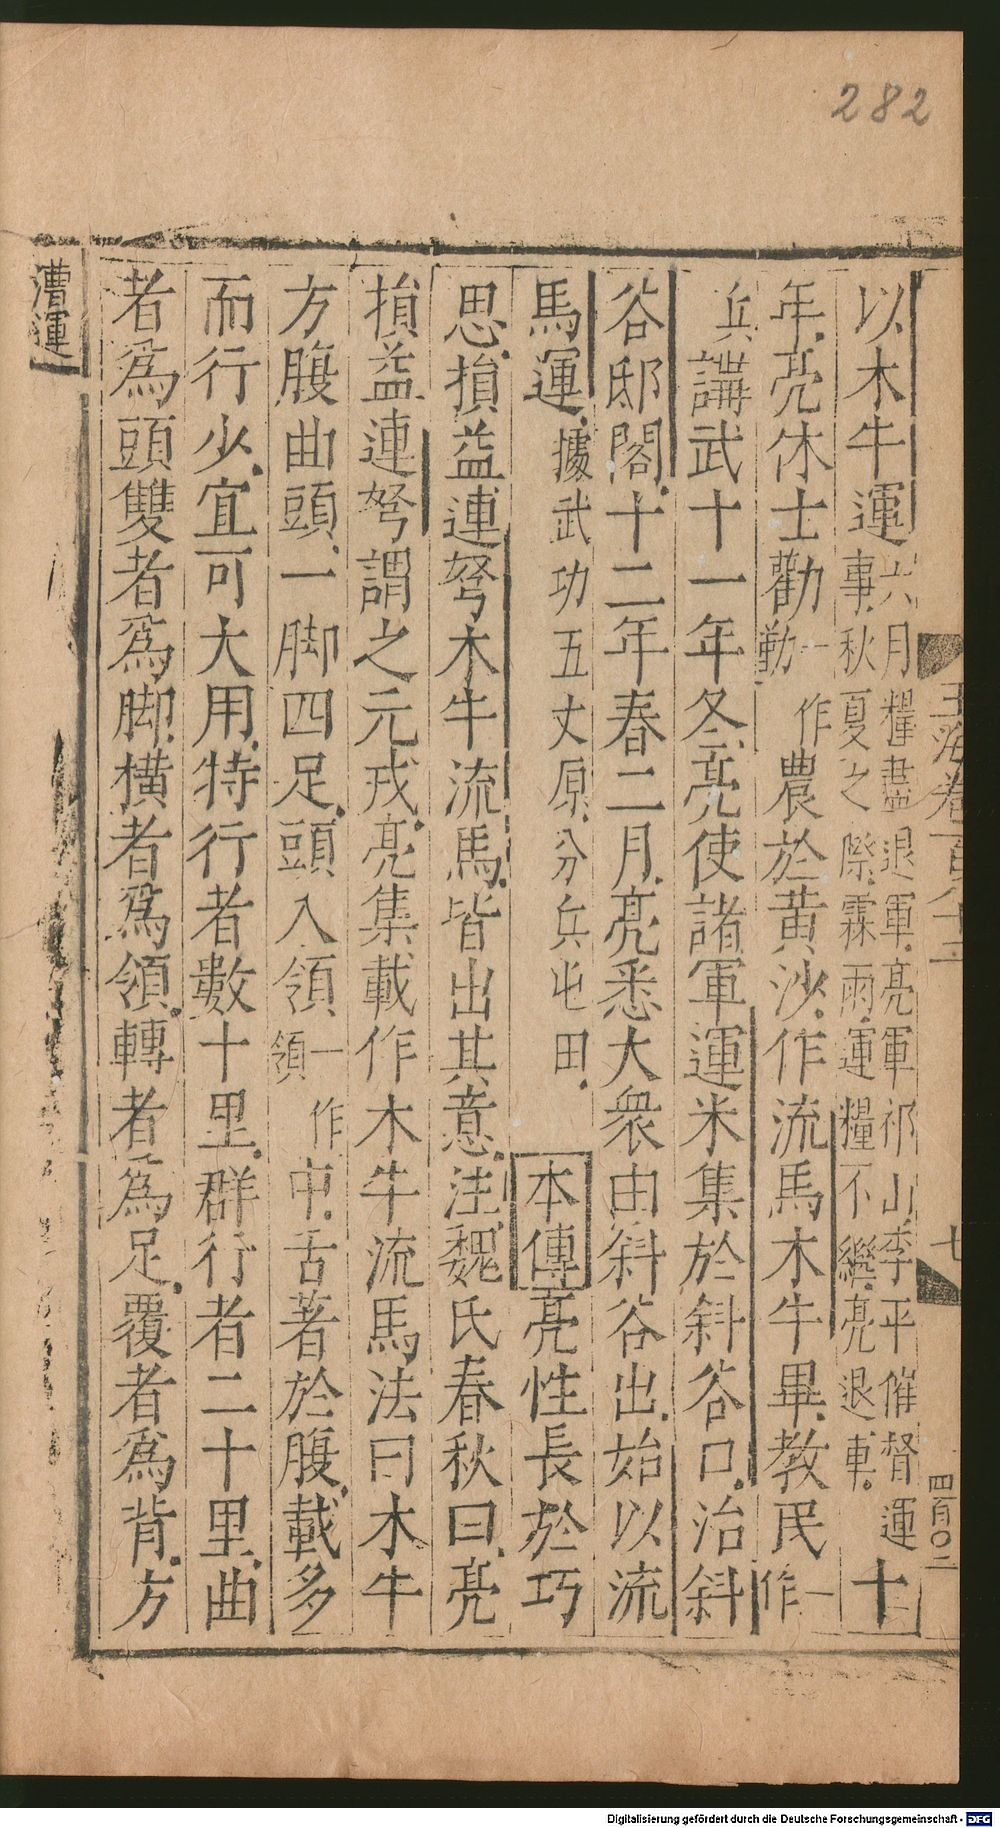 282
以木牛運六月糧盡退軍亮軍祁山李平催督運
事秋夏之際霖雨運糧不繼亮退軍十
年亮休士勸一作
勤農於黃沙作流馬木牛畢教民一作
兵講武十一年冬亮使諸軍運米集於斜谷口治斜
谷邸閣十二年春二月亮悉大衆由斜谷出始以流
馬運據武功五丈原分兵屯田本傳亮性長於巧
思損益連弩木牛流馬皆出其意注魏氏春秋曰亮
損益連弩謂之元戎亮集載作木牛流馬法曰木牛
方腹曲頭一脚四足頭入領一作
領中舌著於腹載多
而行少宜可大用特行者數十里群行者二十里曲
者為頭雙者為脚橫者為領轉者為足覆者為背方
漕運
玉海卷一百八十二
七
四百〇二
Digitalisierung gefördert durch die Deutsche Forschungsgemeinschaft - DFG